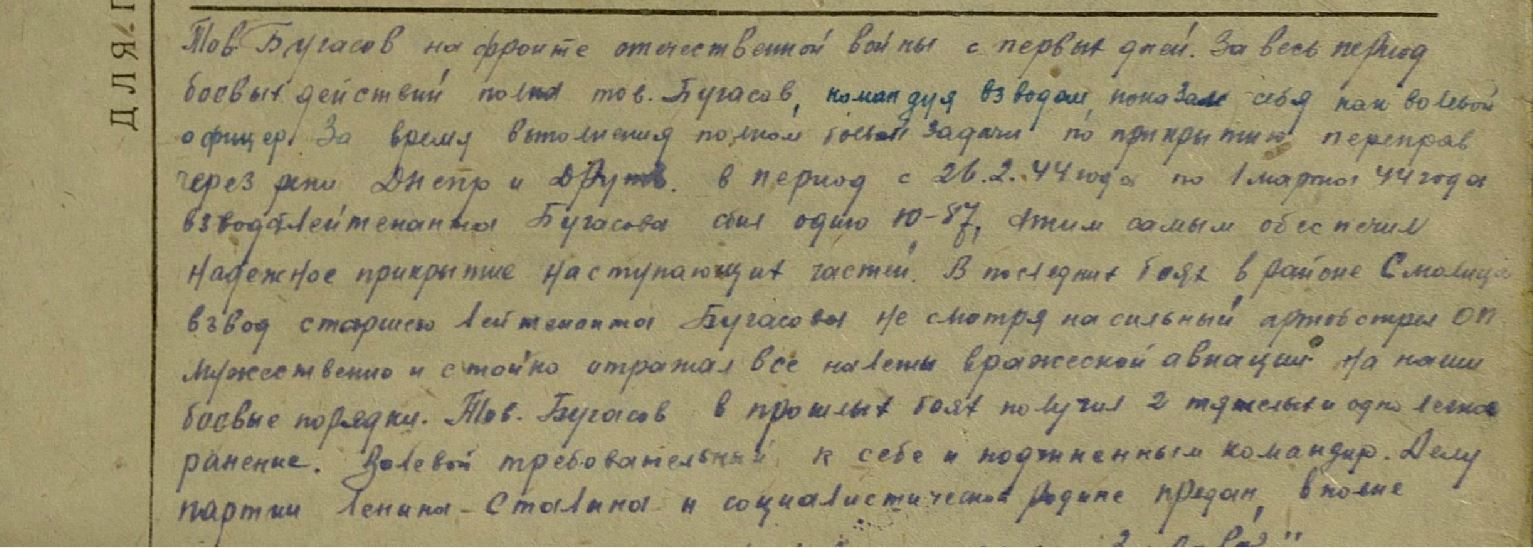 ДЛЯ
Тов. Бугасов на фронте отечественной войны с первых дней. За весь период
боевых действий полка тов. Бугасов, командуя взводом, показал себя как волевой
офицер. За время выполнения полком боевой задачи по прикрытию переправ
через реки Днепр и Друть. в период с 26.2.44 года по 1 марта 44 года
взвод лейтенанта Бугасова сбил одного Ю-87, этим самым обеспечил
надежное прикрытие наступающих частей. В последних боях в районе Смолица
взвод старшего лейтенанта Бугасова не смотря на сильный артобстрел ОП
мужественно и стойко отражал все налеты вражеской авиации на наши
боевые порядки. Тов. Бугасов в прошлых боях получил 2 тяжелых и одно легкое
ранение. Волевой требовательный к себе и подчиненным командир. Делу
партии Ленина-Сталина и социалистической родине предан, вполне